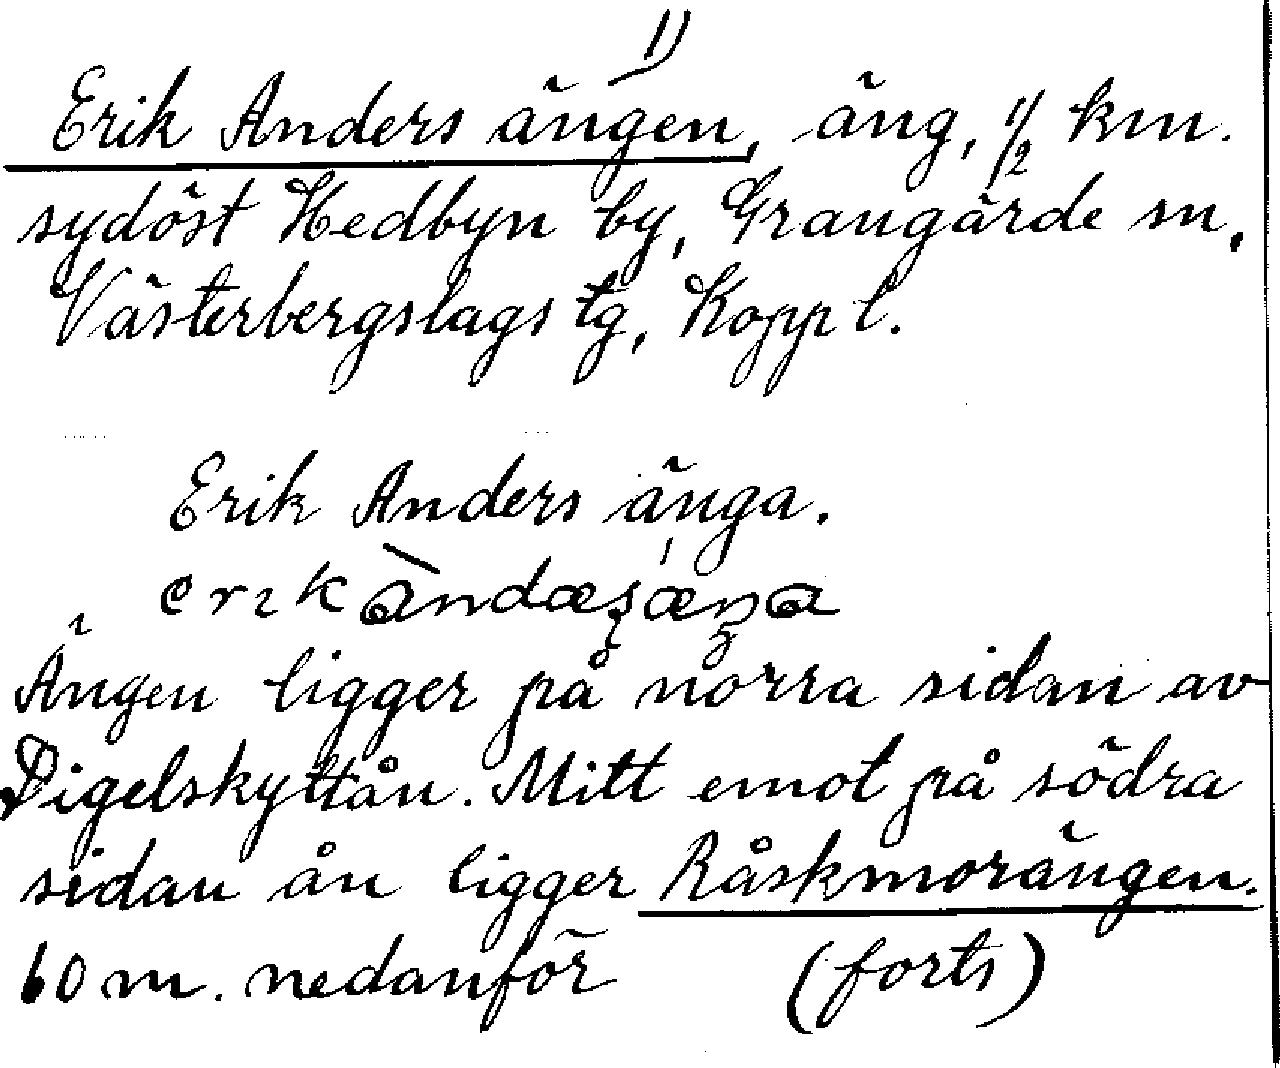 1)
Erik Anders ängen, äng, 1/2 km.
sydöst Hedbyn by, Grangärde sn,
Västerbergslags tg, Kopp l.
Erik Anders änga.
Ängen ligger på norra sidan av
Digelskyttån. Mitt emot på södra
sidan ån ligger Råskmorängen.
60 m. nedanför (forts)